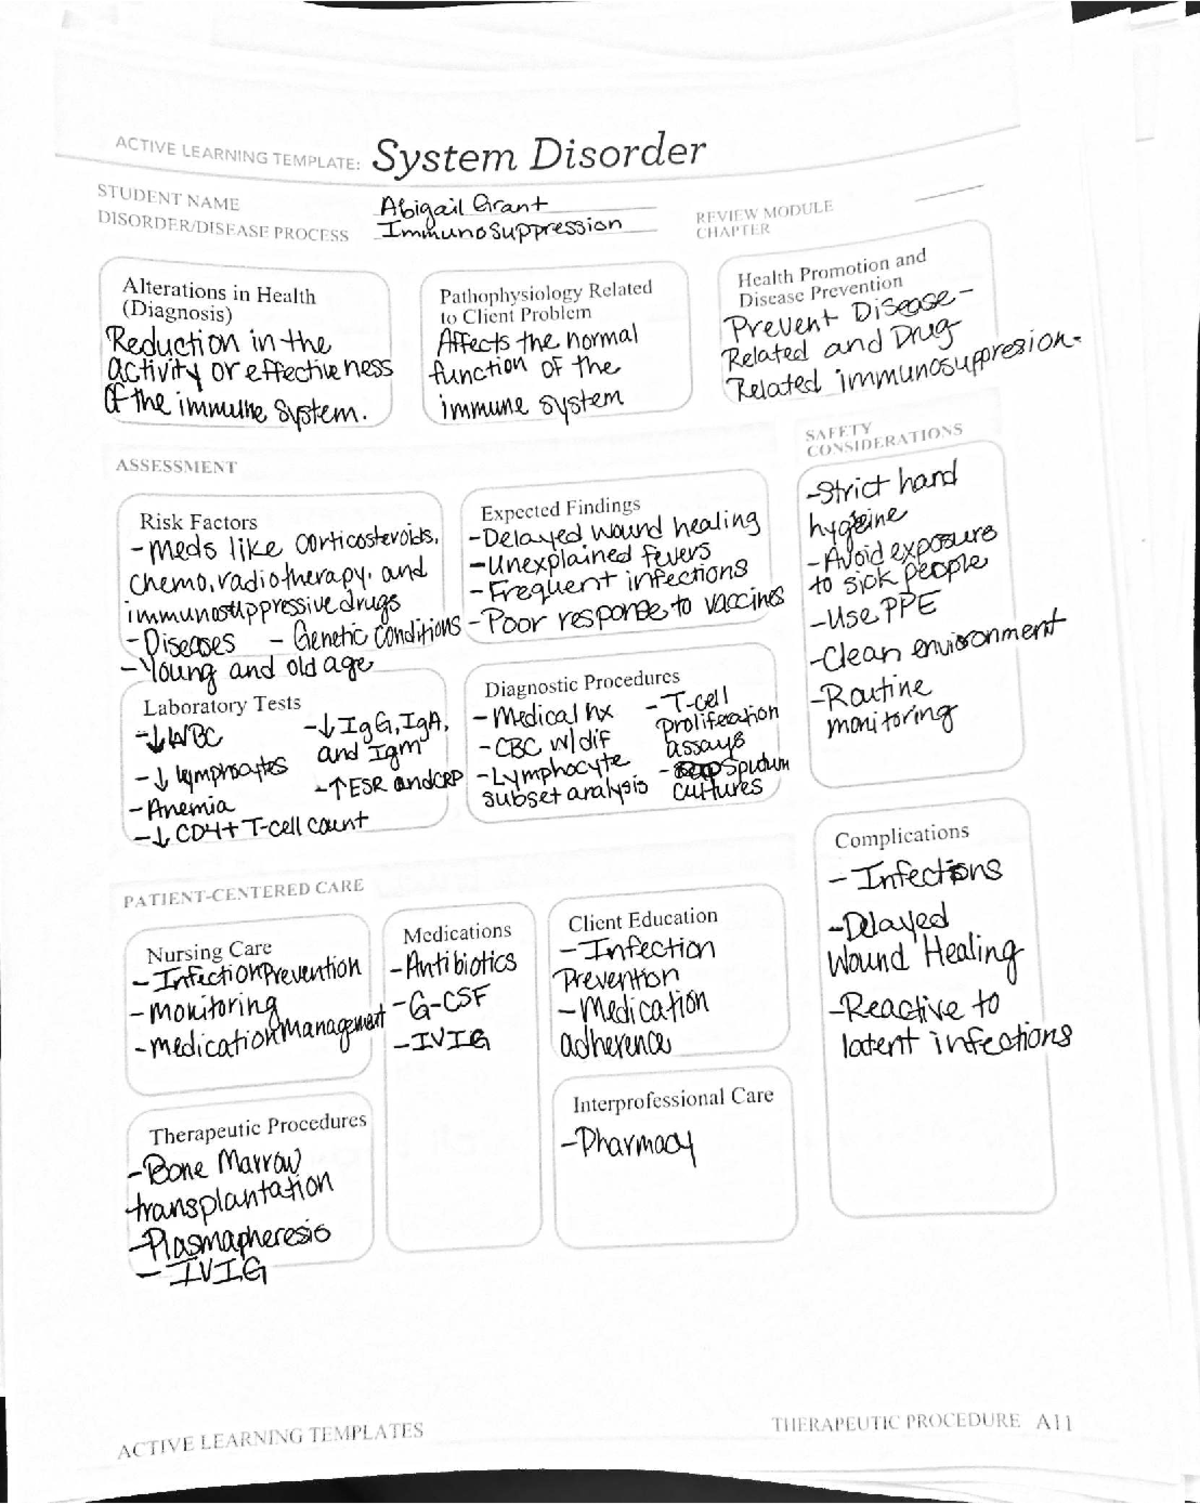 ACTIVE LEARNING TEMPLATE: System Disorder
STUDENT NAME Abigail Grant
DISORDER/DISEASE PROCESS Immunosuppression
REVIEW MODULE
CHAPTER
Alterations in Health
(Diagnosis)
Reduction in the
activity or effectiveness
of the immune system.
Pathophysiology Related
to Client Problem
Affects the normal
function of the
immune system
Health Promotion and
Disease Prevention
Prevent Disease-
Related and Drug
Related immunosuppresion.
ASSESSMENT
Risk Factors
-Meds like corticosteroids,
chemo, radiotherapy. and
immunosuppressive drugs
-Diseases - Genetic Conditions
-Young and old age
Expected Findings
-Delayed wound healing
-Unexplained fevers
-Frequent infections
-Poor response to vaccines
Laboratory Tests
-↓WBC
-↓ lymphocytes
-Anemia
-↓ CD4+ T-cell count
-↓IgG, IgA,
and Igm
-↑ESR and CRP
Diagnostic Procedures
-Medical hx
-CBC w/dif
-Lymphocyte
subset analysis
-T-cell
proliferation
assays
-Sputum
cultures
SAFETY
CONSIDERATIONS
-Strict hand
hygeine
-Avoid exposure
to sick people
-Use PPE
-Clean environment
-Routine
monitoring
PATIENT-CENTERED CARE
Nursing Care
-Infection Prevention
-monitoring
-medication management
Medications
-Antibiotics
-G-CSF
-IVIG
Client Education
-Infection
Prevention
-Medication
adherence
Therapeutic Procedures
-Bone Marrow
transplantation
-Plasmapheresis
-IVIG
Interprofessional Care
-Pharmacy
Complications
-Infections
-Delayed
Wound Healing
-Reactive to
latent infections
ACTIVE LEARNING TEMPLATES
THERAPEUTIC PROCEDURE A11